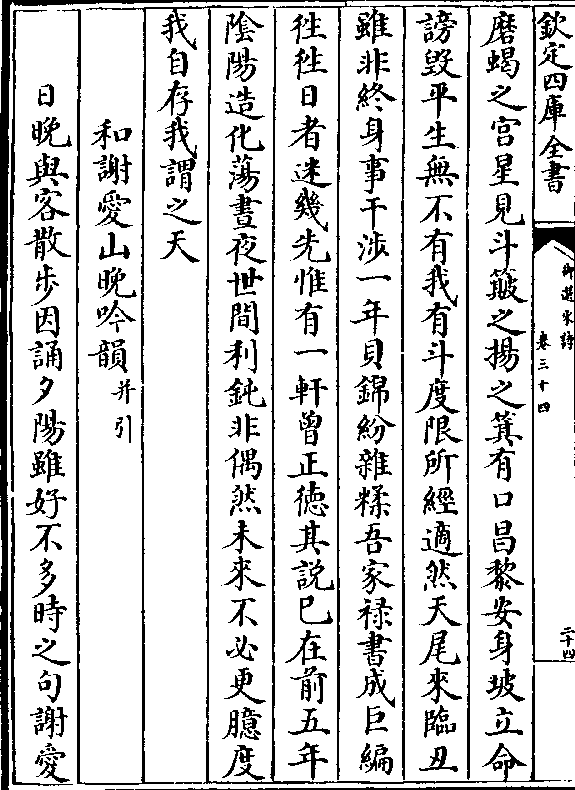 欽定四庫全書
御選宋詩
卷三十四
二十四
磨蝎之宫星見斗簸之揚之箕有口昌黎安身坡立命
謗毀平生無不有我有斗度限所經適然天尾來臨丑
雖非終身事干渉一年貝錦紛雜糅吾家禄書成巨編
徃徃日者迷幾先惟有一軒曾正德其説已在前五年
隂陽造化蕩晝夜世間利鈍非偶然未來不必更臆度
我自存我謂之天
和謝愛山晚吟韻并引
日晚與客散步因誦夕陽雖好不多時之句謝愛